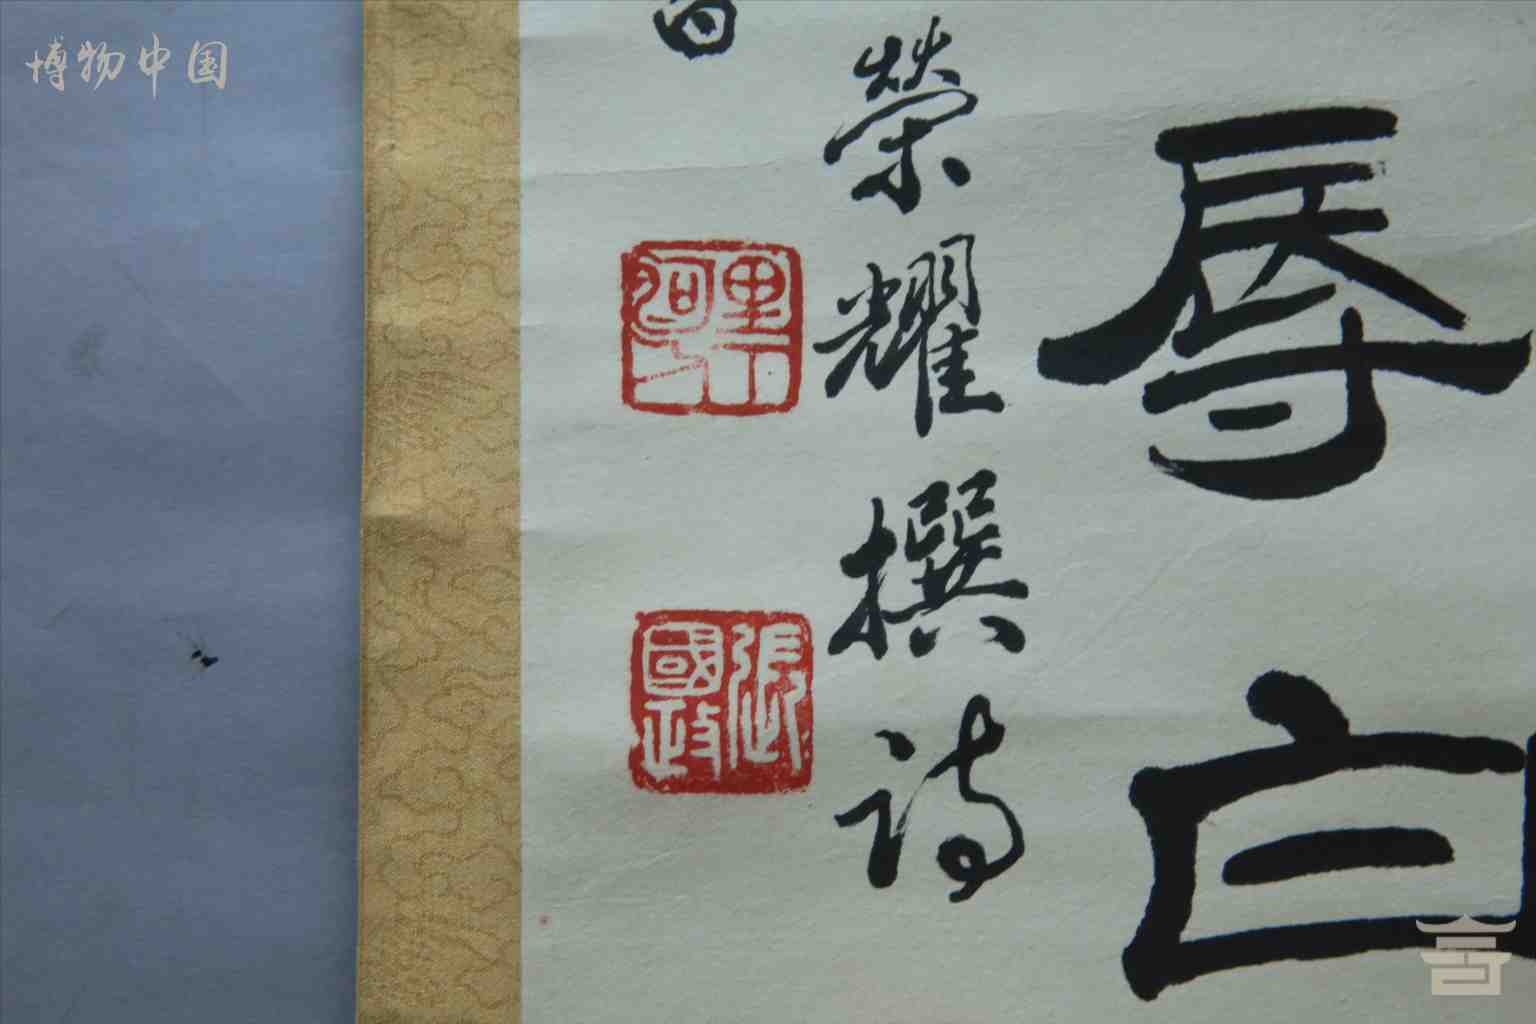 博物中国
辱白
榮耀撰詩
張國政